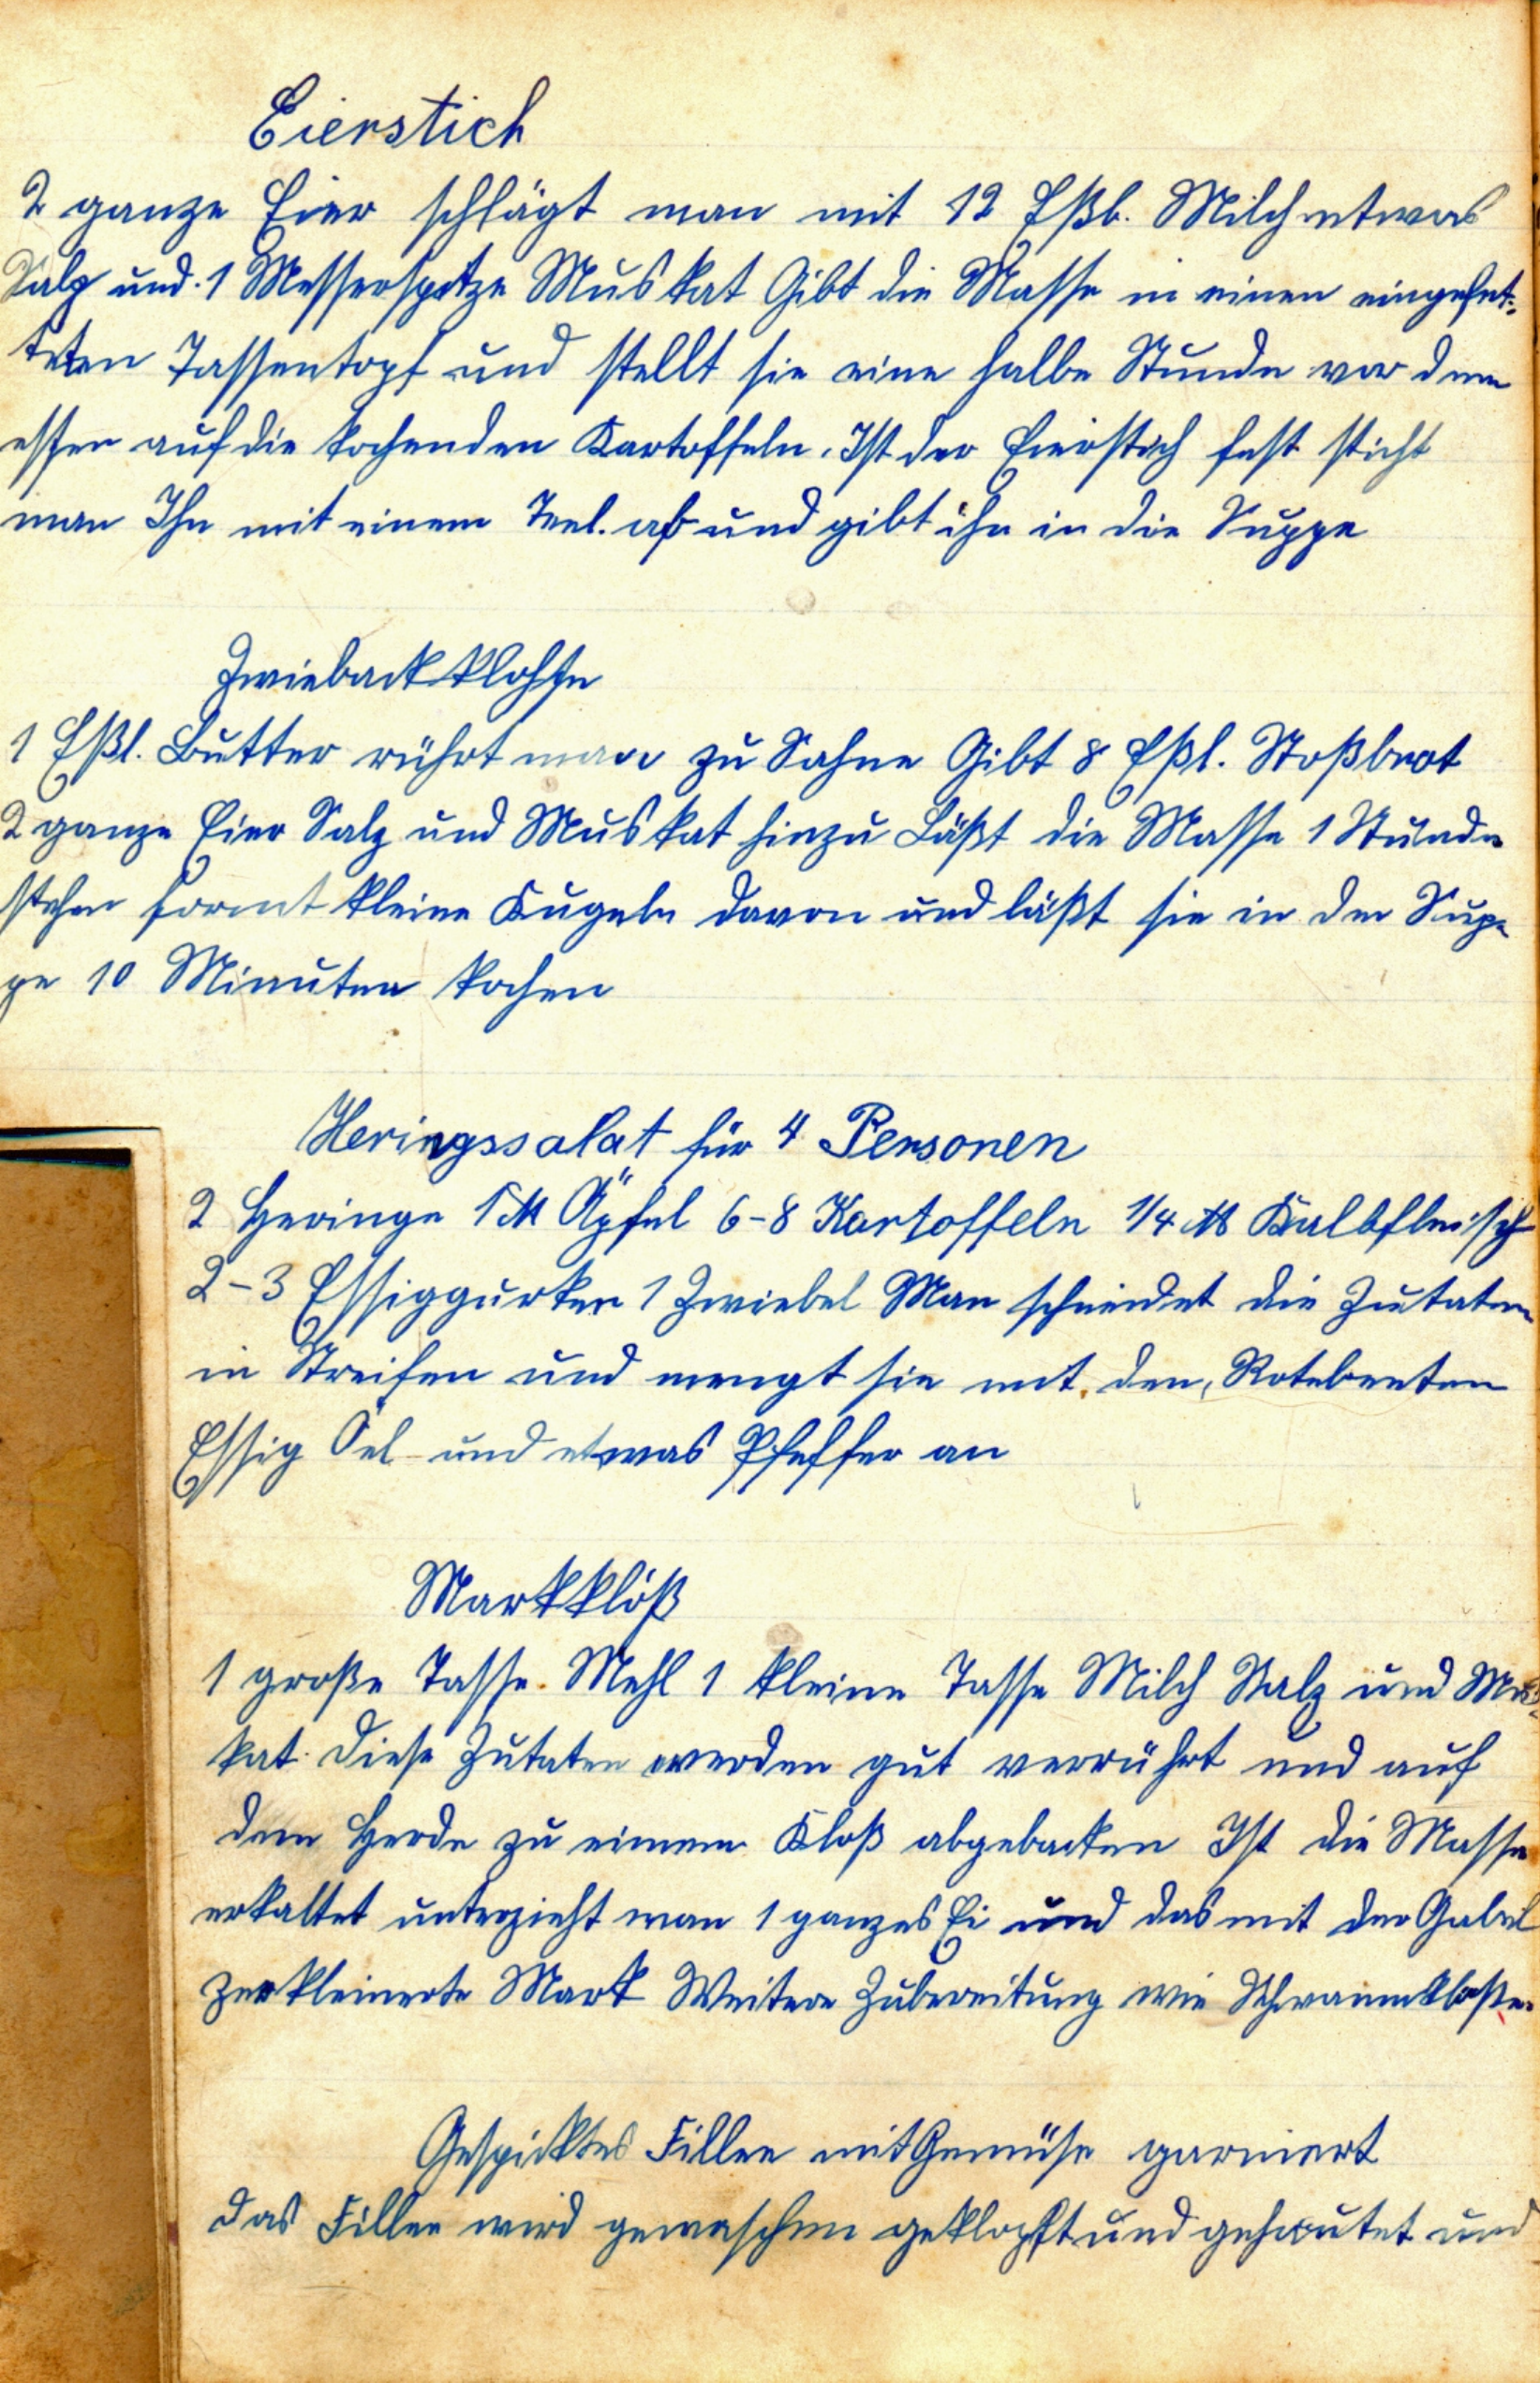 Eierstich
2 ganze Eier schlägt man mit 12 Eßl. Milch etwas
Salz und 1 Messerspitze Muskat Gibt die Masse in einen eingefet-
teten Tassentopf und stellt sie eine halbe Stunde vor dem
essen auf die kochenden Kartoffeln. Ist der Eierstich fest sticht
man Ihn mit einem Teel. ab und gibt ihn in die Suppe
Zwiebackklohse
1 Eßl. Butter rührt man zu Sahne Gibt 8 Eßl. Stoßbrot
2 ganze Eier Salz und Muskat hinzu Läßt die Masse 1 Stunde
stehen formt kleine Kugeln davon und läßt sie in der Sup-
pe 10 Minuten kochen
Heringssalat für 4 Personen
2 Heringe 1 ℔ Äpfel 6-8 Kartoffeln 1/4 ℔ Kalbfleisch
2-3 Essiggurken 1 Zwiebel Man schneidet die Zutaten
in Streifen und mengt sie mit den Rotebeeten
Essig Öel und etwas Pfeffer an
Markklöß
1 große Tasse Mehl 1 kleine Tasse Milch Salz und Mus-
kat. Diese Zutaten werden gut verrührt und auf
dem Herde zu einem Kloß abgebacken Ist die Masse
erkaltet unterzieht man 1 ganzes Ei und das mit der Gabel
zerkleinerte Mark Weitere Zubereitung wie Schwammkloße.
Gespicktes Fillee mit Gemüse garniert
Das Fillee wird gewaschen geklopft und gehäutet und